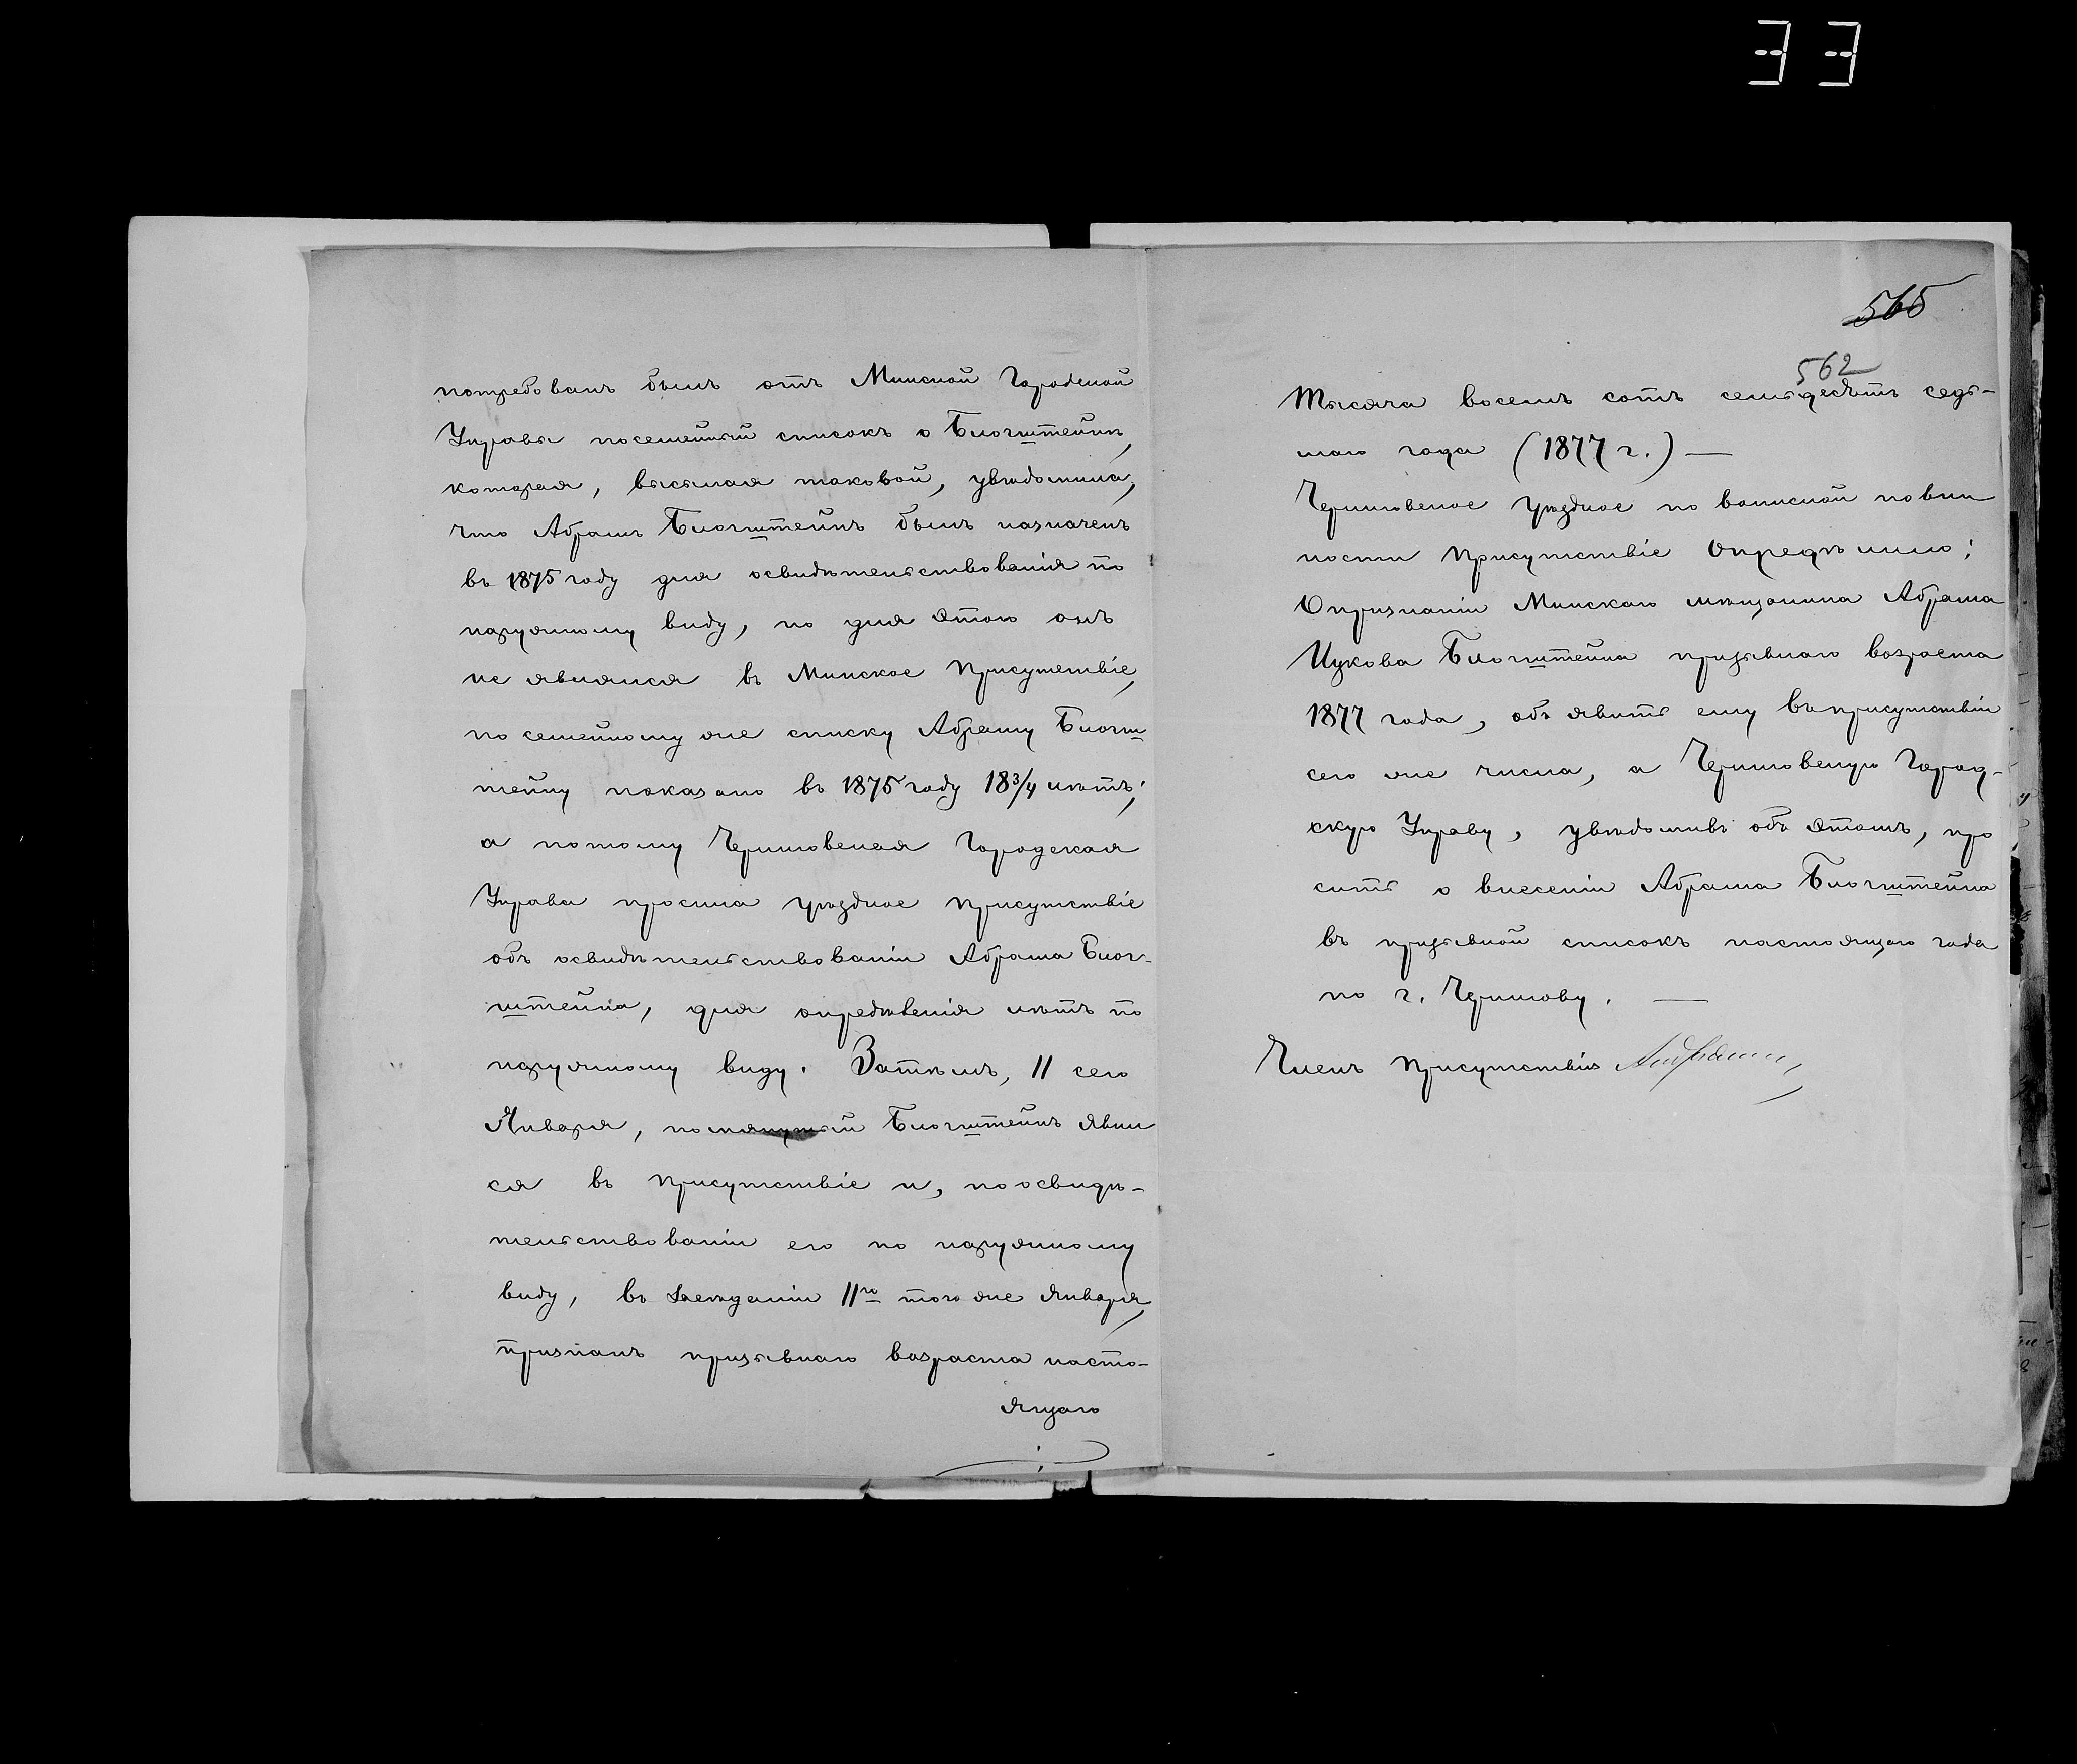 33
потребованъ былъ отъ Минской Городской
Управы посемейный списокъ о Блогштейнѣ,
которая, высылая таковой, увѣдомила,
что Абрамъ Блогштейнъ былъ назначенъ
въ 1875 году для освидѣтельствованія по
наружному виду, но для этого онъ
не являлся въ Минское Присутствіе,
по семейному же списку Абраму Блогш
тейну показано въ 1875 году 18 3/4 лѣтъ;
а потому Чериковская Городская
Управа просила уѣздное присутствіе
объ освидѣтельствованіи Абрама Блог-
штейна, для опредѣленія лѣтъ по
наружному виду. Затѣмъ, 11 сего
Января, помянутый Блогштейнъ явил
ся въ присутствіе и, по освидѣ-
тельствованіи его по наружному
виду, въ засѣданіи 11го того же Января,
признанъ призывнаго возраста насто-
ящаго
565
562
тысяча восемь сотъ семьдесятъ седь-
маго года (1877 г.) —
Чериковское уѣздное по воинской повин
ности присутствіе Опредѣлило:
О признаніи Минскаго мѣщанина Абрама
Ицкова Блогштейна призывнаго возраста
1877 года, объявить ему въ присутствіи
сего же числа, а Чериковскую Город-
скую Управу, увѣдомивъ объ этомъ, про
сить о внесеніи Абрама Блогштейна
въ призывной списокъ настоящаго года
по г. Черикову. —
Членъ Присутствія